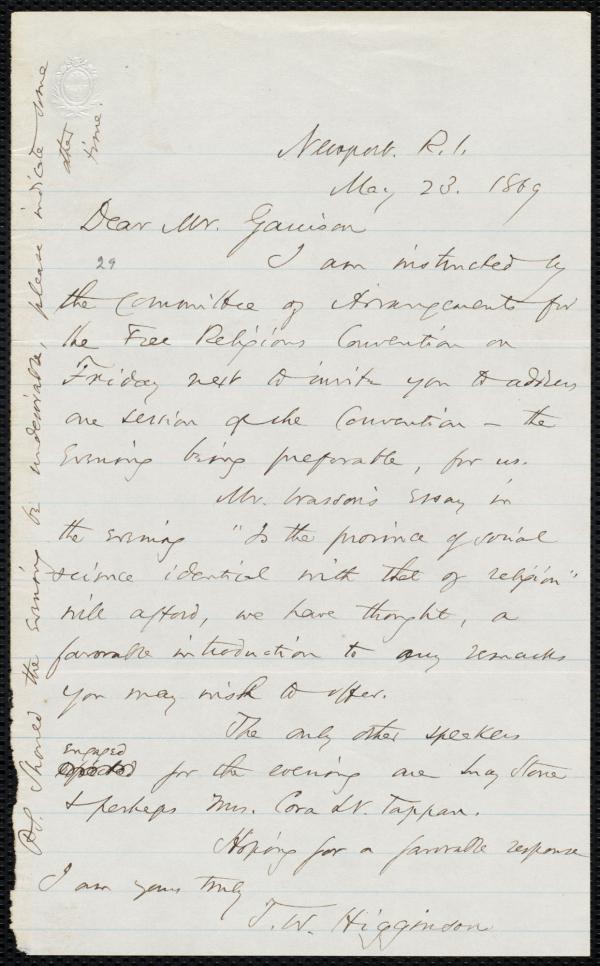 Newport. R.I.
May 23. 1869
Dear Mr. Garrison
29
I am instructed by
the Committee of Arrangements for
the Free Religious Convention on
Friday next to invite you to address
one session of the Convention - the
evening being preferable, for us.
Mr. Wasson's essay in
the evening "Is the province of social
science identical with that of religion"
will afford, we have thought, a
favorable introduction to any remarks
you may wish to offer.
The only other speakers
engaged
for the evening are Lucy Stone
& perhaps Mrs. Cora L.V. Tappan.
Hoping for a favorable response
I am yours truly
T. W. Higginson
P.S. Should the evening be undesirable, please indicate some
other
time.